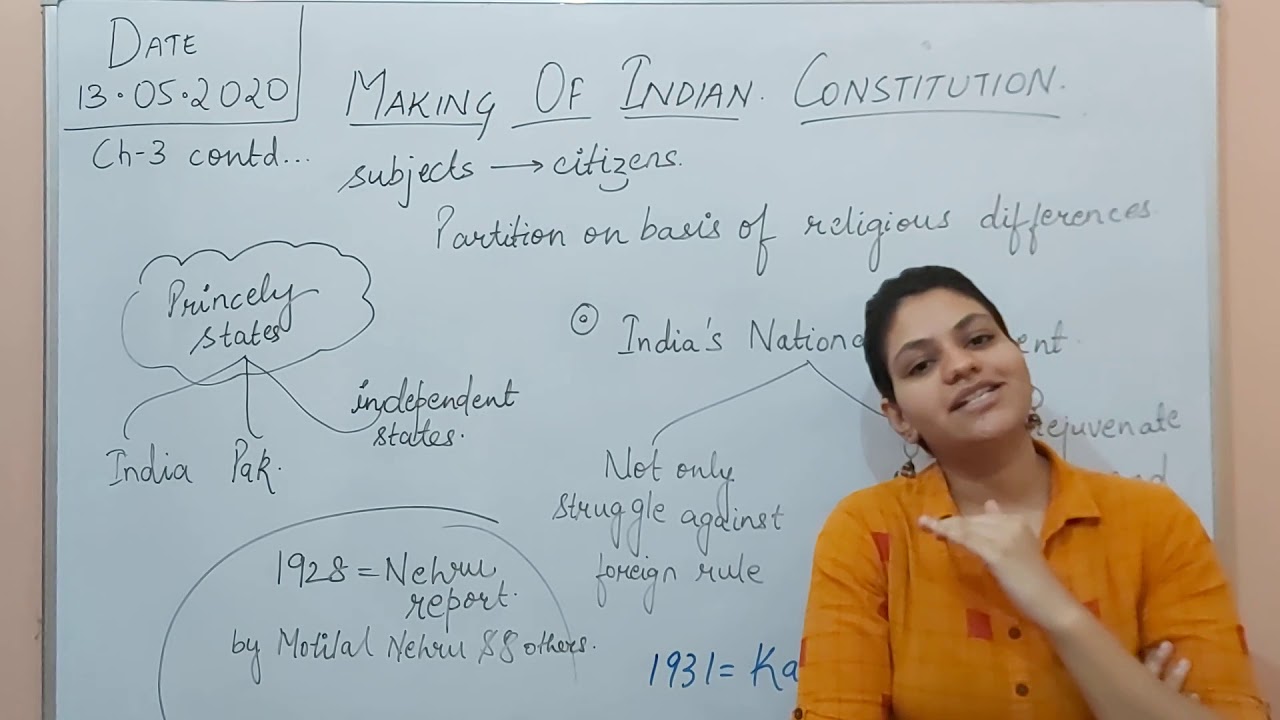 DATE
13.05.2020
MAKING OF INDIAN. CONSTITUTION.
Ch-3 contd...
subjects → citizens.
Partition on basis of religious differences
Princely
states
India
Pak.
independent
states.
India's Nationa
ent
Not only
struggle against
foreign rule
rejuvenate
1928 = Nehru
report.
by Motilal Nehru & 8 others.
1931 = Ka